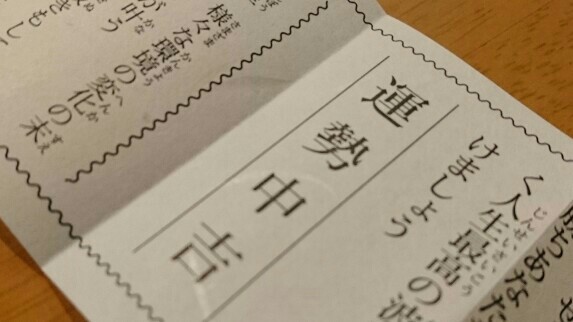 ちあなた
く人生最高の波
けましょう
運勢中吉
様々な環境の変化の末
が叶う
きもし